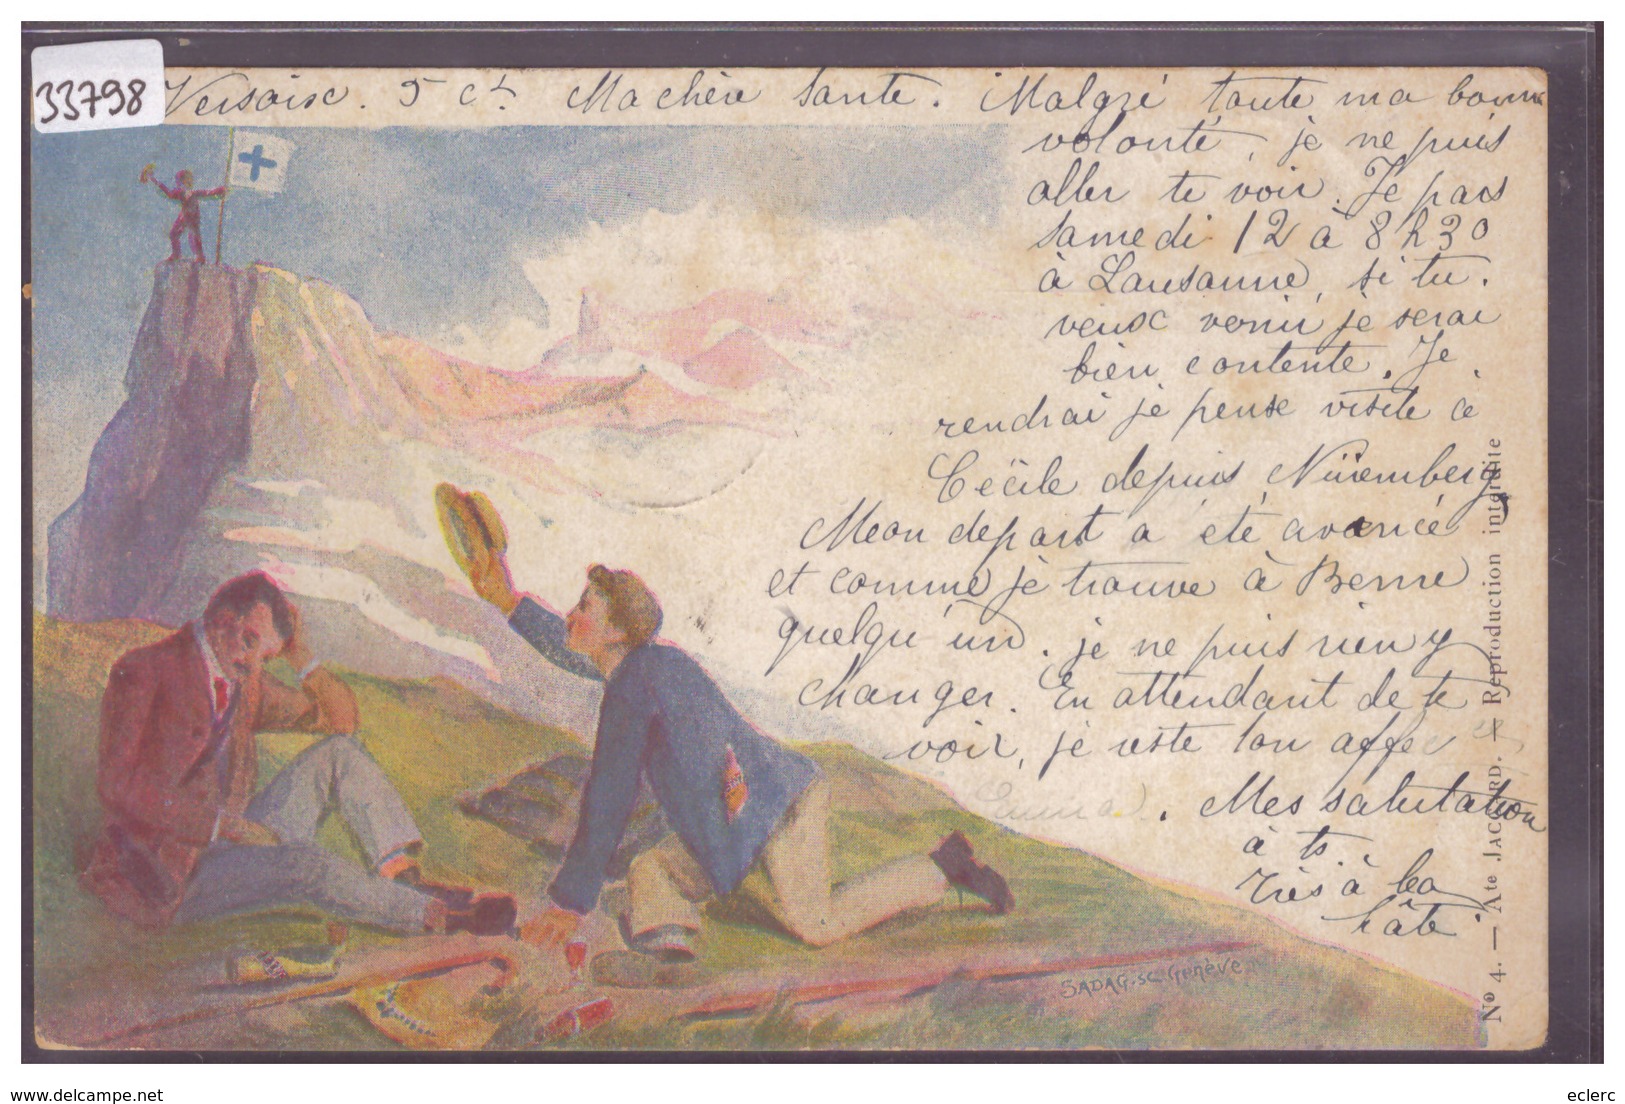 33798
Versoix. 5 ct Ma chère tante. Malgré toute ma bonne
volonté, je ne puis
aller te voir. Je pars
samedi 12 à 8 h 30
à Lausanne, si tu
veux venir je serai
bien contente. Je
rendrai je pense visite à
Cécile depuis Nüremberg,
Mon depart a été avancé
et comme je trouve à Berne
quelqu'un. je ne puis rien y
changer. En attendant de te
voir, je reste ton affec
Emma. Mes salutation
à ts.
Très à la
hâte
SADAG. SC. Genève
No 4. — Ate JACCARD. — Reproduction interdite
www.delcampe.net
eclerc